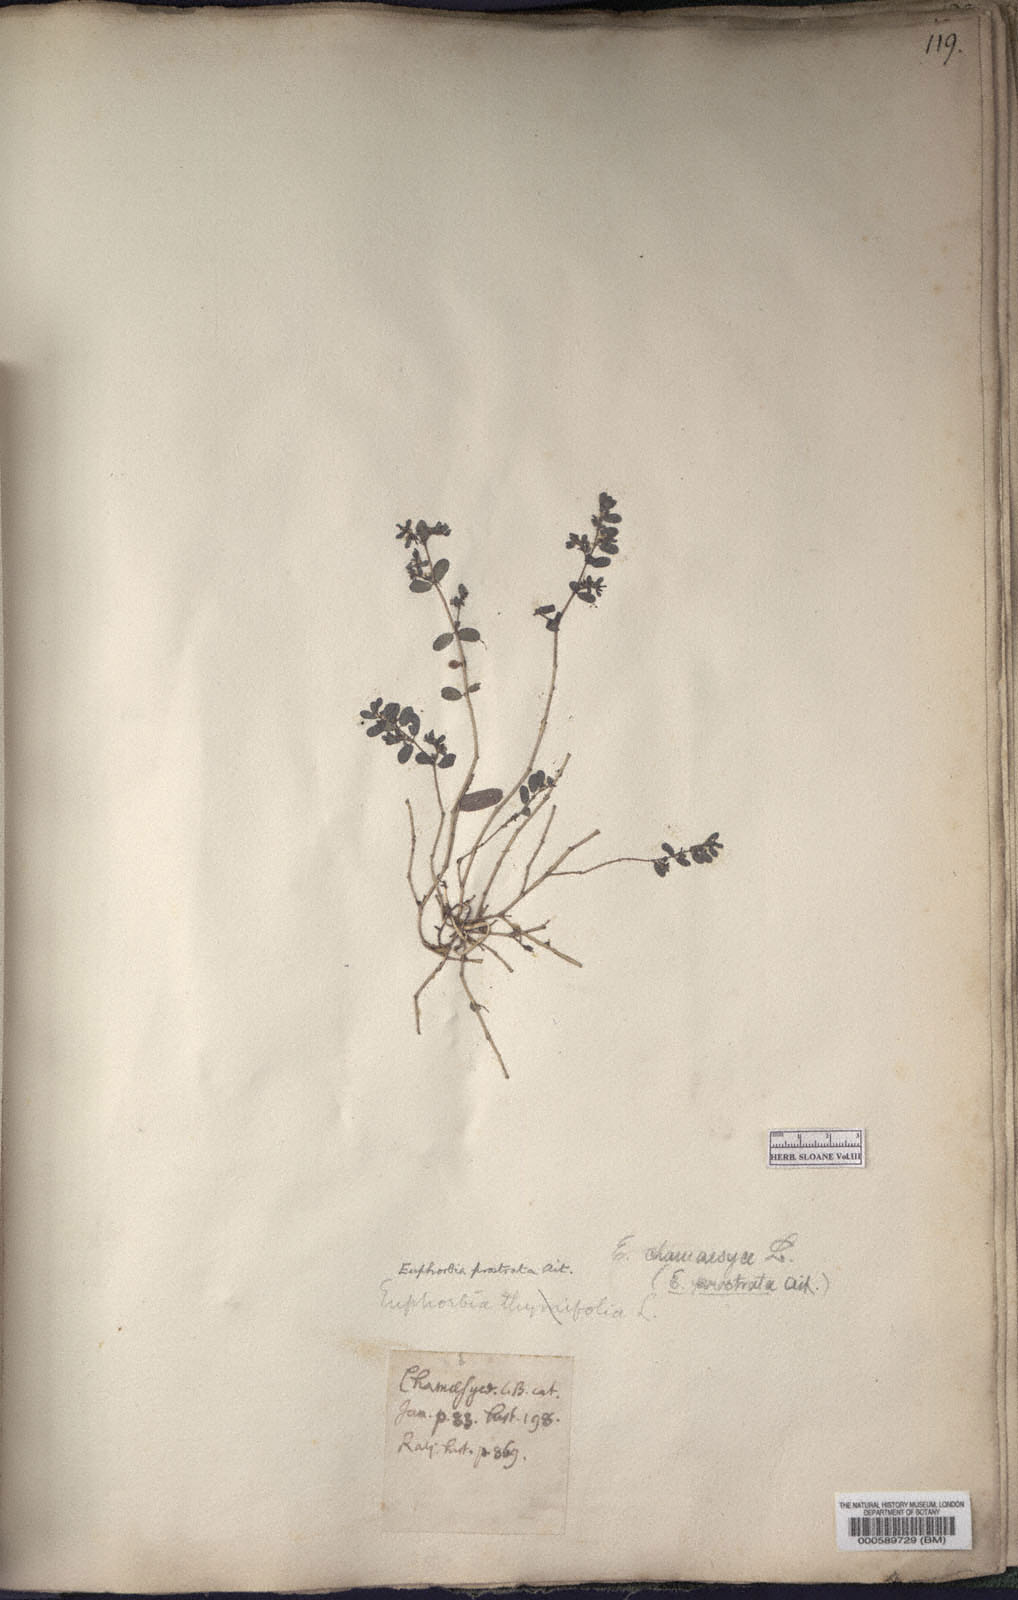 119.
1 2 3
HERB. SLOANE Vol.III
E. chamaesyce L.
(E. prostrata Ait.)
Euphorbia prostrata Ait.
Euphorbia thymifolia L.
Chamæsyce. C.B. cat.
Jam. p. 83. hist. 198.
Raij. hist. p. 869.
THE NATURAL HISTORY MUSEUM, LONDON
DEPARTMENT OF BOTANY
000589729 (BM)